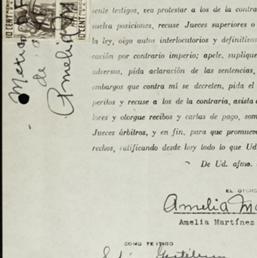 10 CENT
10 CENT
Amelia M
sente testigos, vea protestar a los de la contra
suelta posiciones, recuse Jueces superiores o
la ley, oiga autos interlocutorios y definitivos
cación por contrario imperio; apele, suplique
adversos, pida aclaración de las sentencias,
embargos que contra mi se decreten, pida el
peritos y recuse a los de la contraria, asista a
lores y otorgue recibos y cartas de pago, som
Jueces árbitros, y en fin, para que promueva
rechos, ratificando desde hoy todo lo que Ud
De Ud. afmo.
EL OTORG
Amelia Ma
Amelia Martínez
COMO TESTIGO